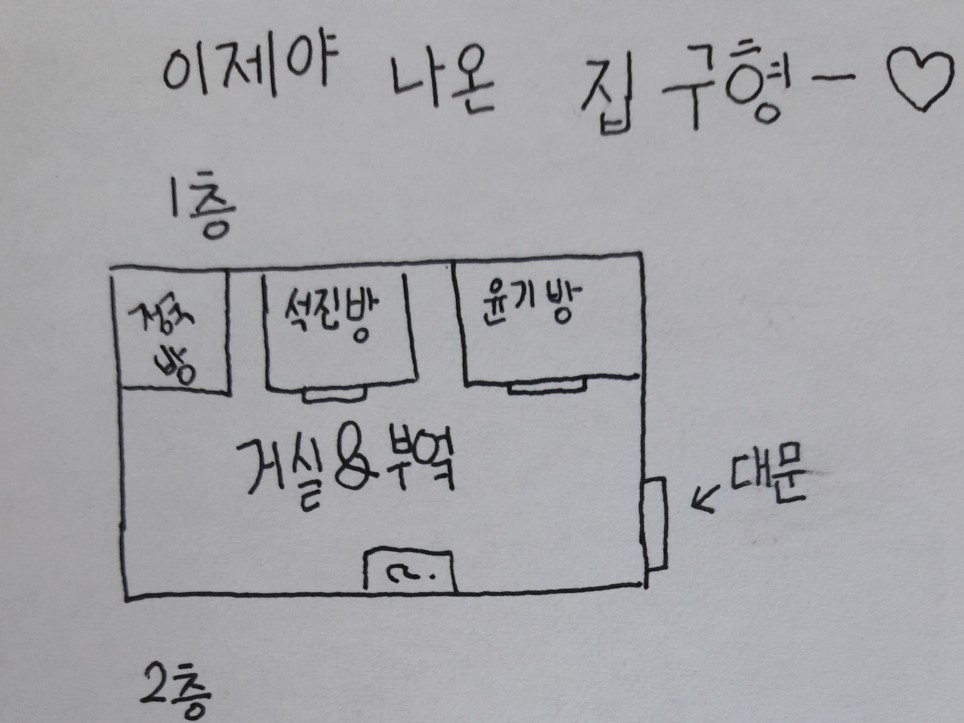 이제야 나온 집 구형ㅡ♡
1층
정국
방
석진방
윤기방
거실&부엌
대문
2층